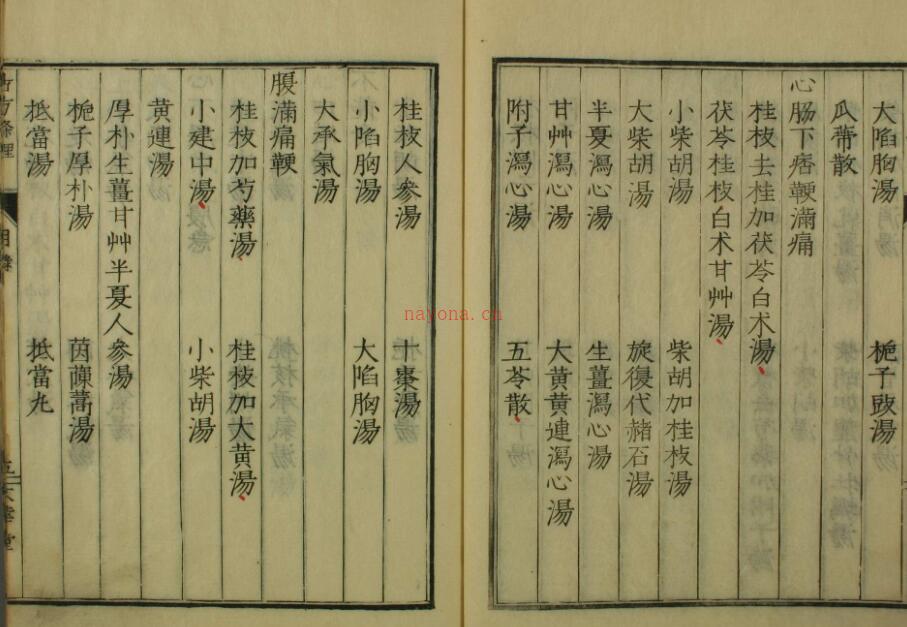 大陷胸湯 梔子豉湯
瓜蔕散
心腸下痞鞕滿痛
桂枝去桂加茯苓白术湯
茯苓桂枝白术甘艸湯
小柴胡湯 柴胡加桂枝湯
大柴胡湯 旋復代赭石湯
半夏瀉心湯 生薑瀉心湯
甘艸瀉心湯 大黃黃連瀉心湯
附子瀉心湯 五苓散
桂枝人參湯 十棗湯
小陷胸湯 大陷胸湯
大承氣湯
腹滿痛鞕
桂枝加芍藥湯 桂枝加大黃湯
小建中湯 小柴胡湯
黃連湯
厚朴生薑甘艸半夏人參湯
梔子厚朴湯 茵蔯蒿湯
抵當湯 抵當丸
nayona.cn